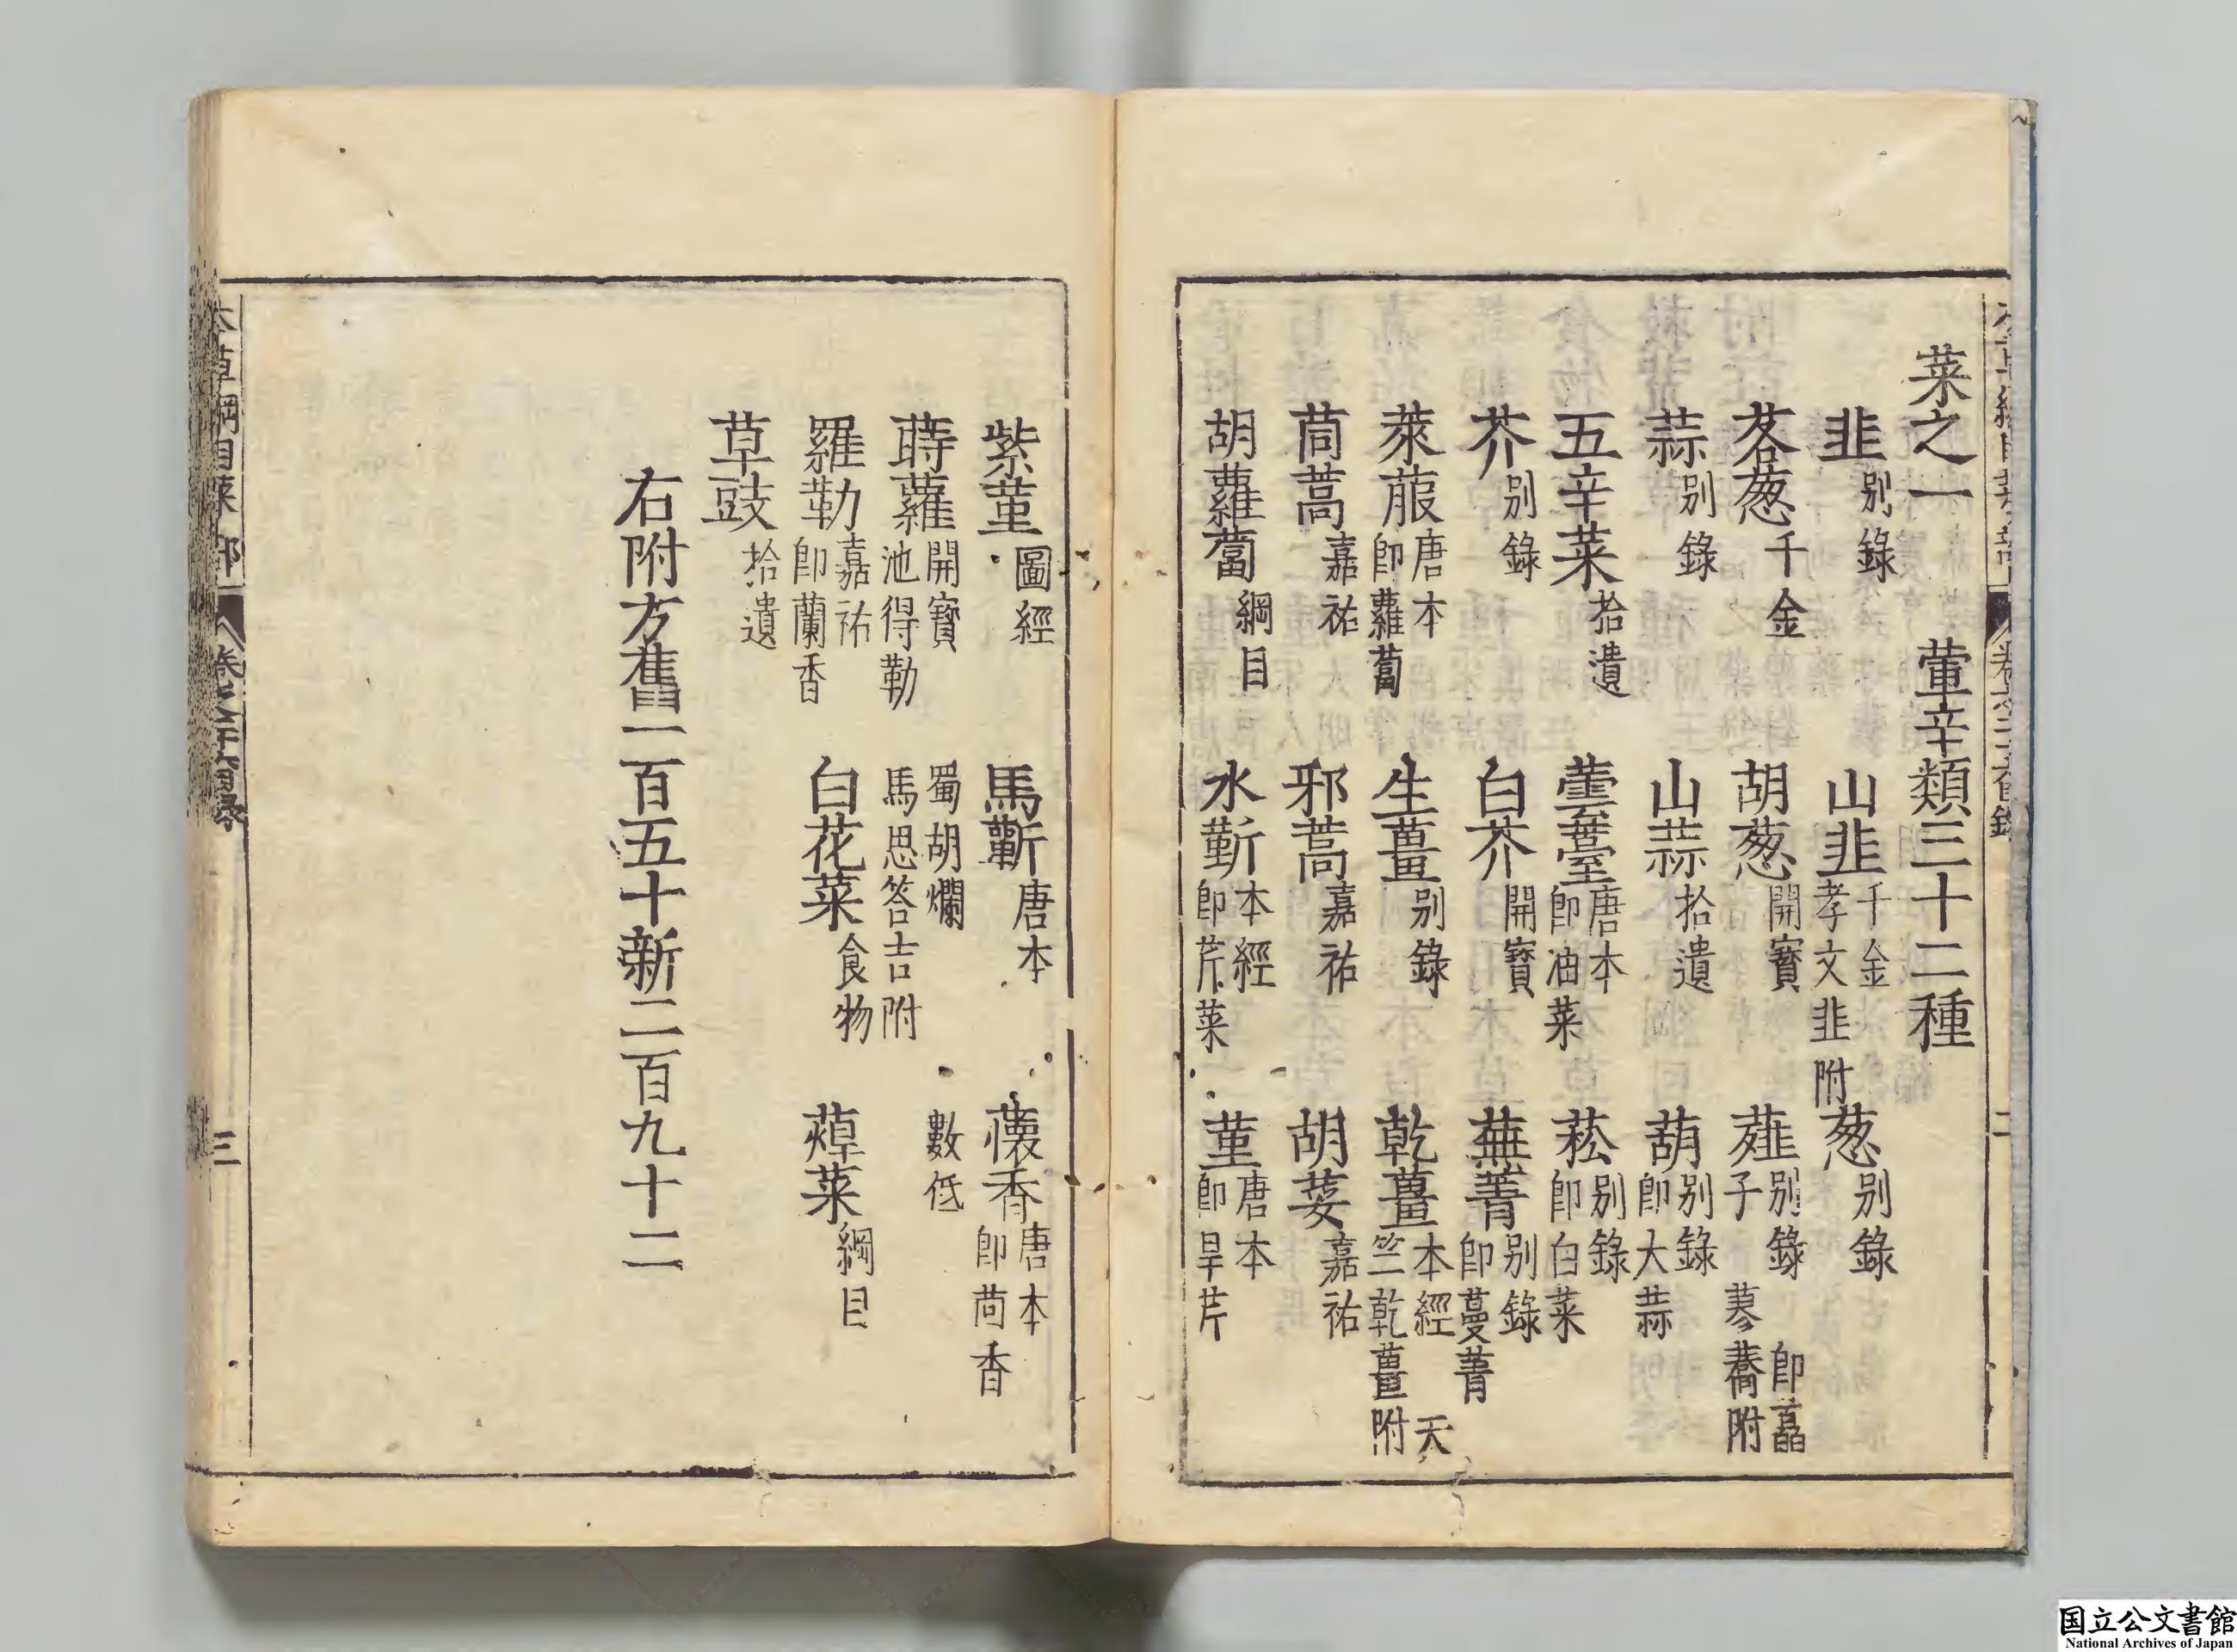 菜之一 葷辛類三十二種
韭 别錄 山韭 千金 孝文韭附 葱 别錄
茖葱 千金 胡葱 開寳 薤 别錄 即藠子 蓼蕎附
蒜 别錄 山蒜 拾遺 葫 别錄 即大蒜
五辛菜 拾遺 蕓薹 唐本 即油菜 菘 别錄 即白菜
芥 别錄 白芥 開寳 蕪菁 别錄 即蔓菁
萊菔 唐本 即蘿蔔 生薑 别錄 乾薑 本經 天竺乾薑附
茼蒿 嘉祐 邪蒿 嘉祐 胡荽 嘉祐
胡蘿蔔 綱目 水蘄 本經 即芹菜 菫 唐本 即旱芹
紫菫 圖經 馬蘄 唐本 蘹香 唐本 即茴香
蒔蘿 開寳 池得勒 蜀胡爛 數低 馬思荅吉附
羅勒 嘉祐 即蘭香 白花菜 食物 蔊菜 綱目
草豉 拾遺
右附方舊一百五十新二百九十二
草綱目菜部 卷之二十六目錄
三
国立公文書館
National Archives of Japan